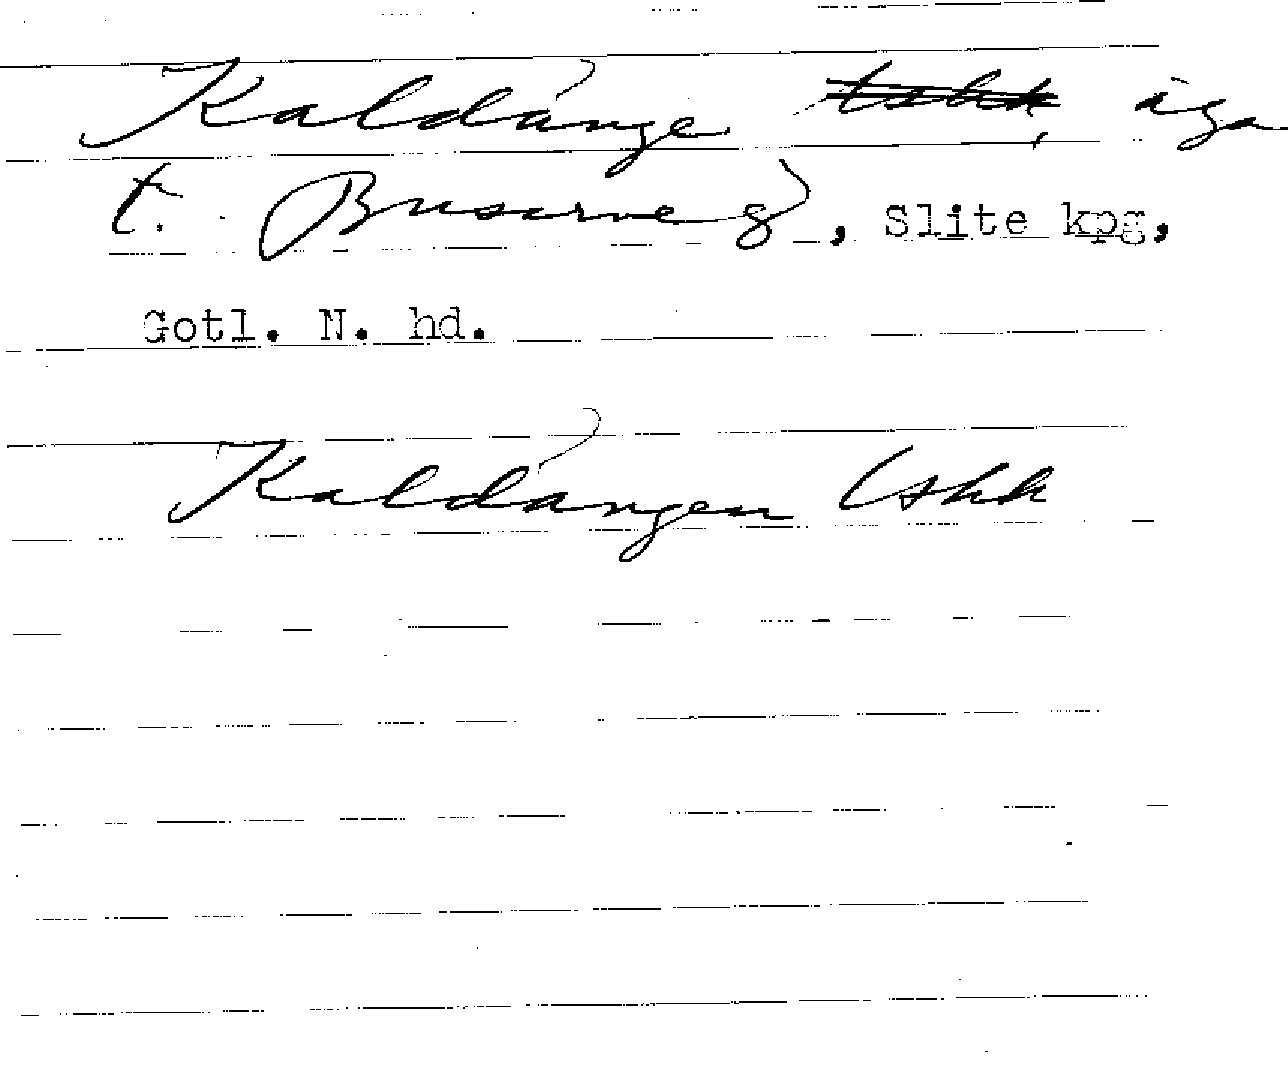 Kaldänge äga
t. Busarve g, Slite kpg,
Gotl. N. hd.
Kaldängen Tshk